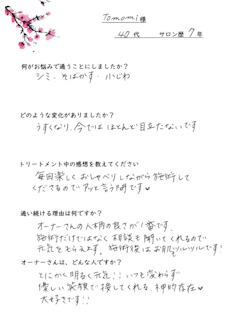 Tomomi 様
40代 サロン歴 7年
何がお悩みで通うことにしましたか？
シミ、そばかす、小じわ
どのような変化がありましたか？
うすくなり、今ではほとんど目立たないです
トリートメント中の感想を教えてください
毎回楽しくおしゃべりしながら施術して
くださるのでアッと言う間です♥
通い続ける理由は何ですか？
オーナーさんの人柄の良さが1番です。
施術だけではなく相談も聞いてくれるので
元気をもらえます。施術後はお肌ツルツルです！
オーナーさんは、どんな人ですか？
とにかく明るく元気！！いつも変わらず
優しい笑顔で接してくれる、神的存在♥
大好きです！！